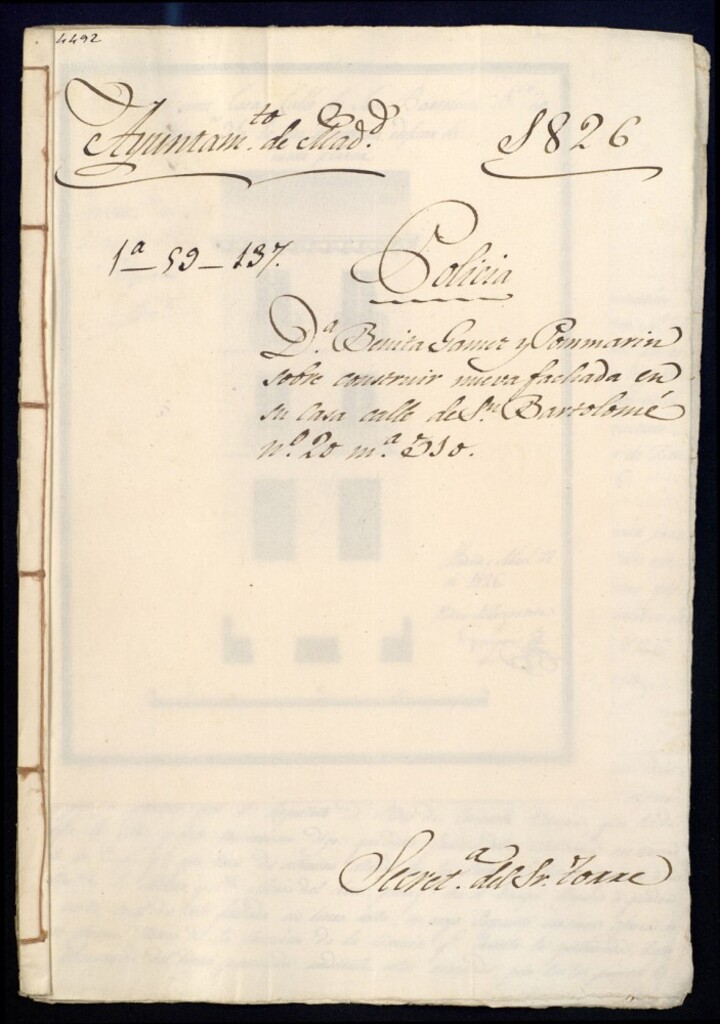 4492
Ayuntam.to de Mad.d 1826
1a-59-137.
Policia
D.a Benita Gamez y Pommarin
sobre construir nueva fachada en
su Casa calle de Sn. Bartolomé
n.o 20 m.a 310.
Secret.a del Sr. Torre